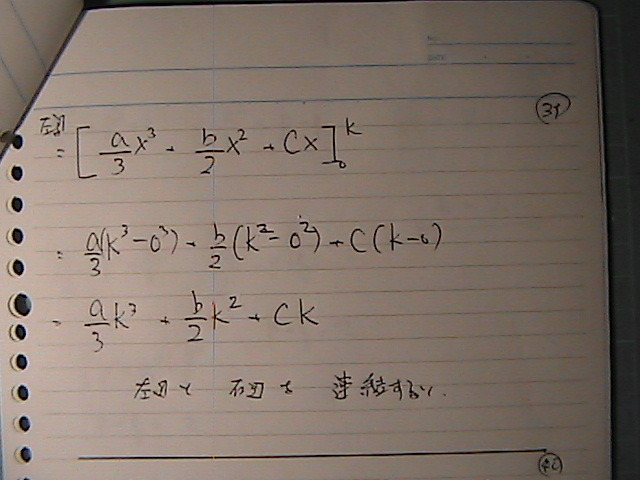 ㊴
左辺
= [ a/3 x³ + b/2 x² + Cx ]₀ᵏ
= a/3 (k³ - 0³) + b/2 (k² - 0²) + C(k - 0)
= a/3 k³ + b/2 k² + Ck
左辺と 右辺を 連結すると、